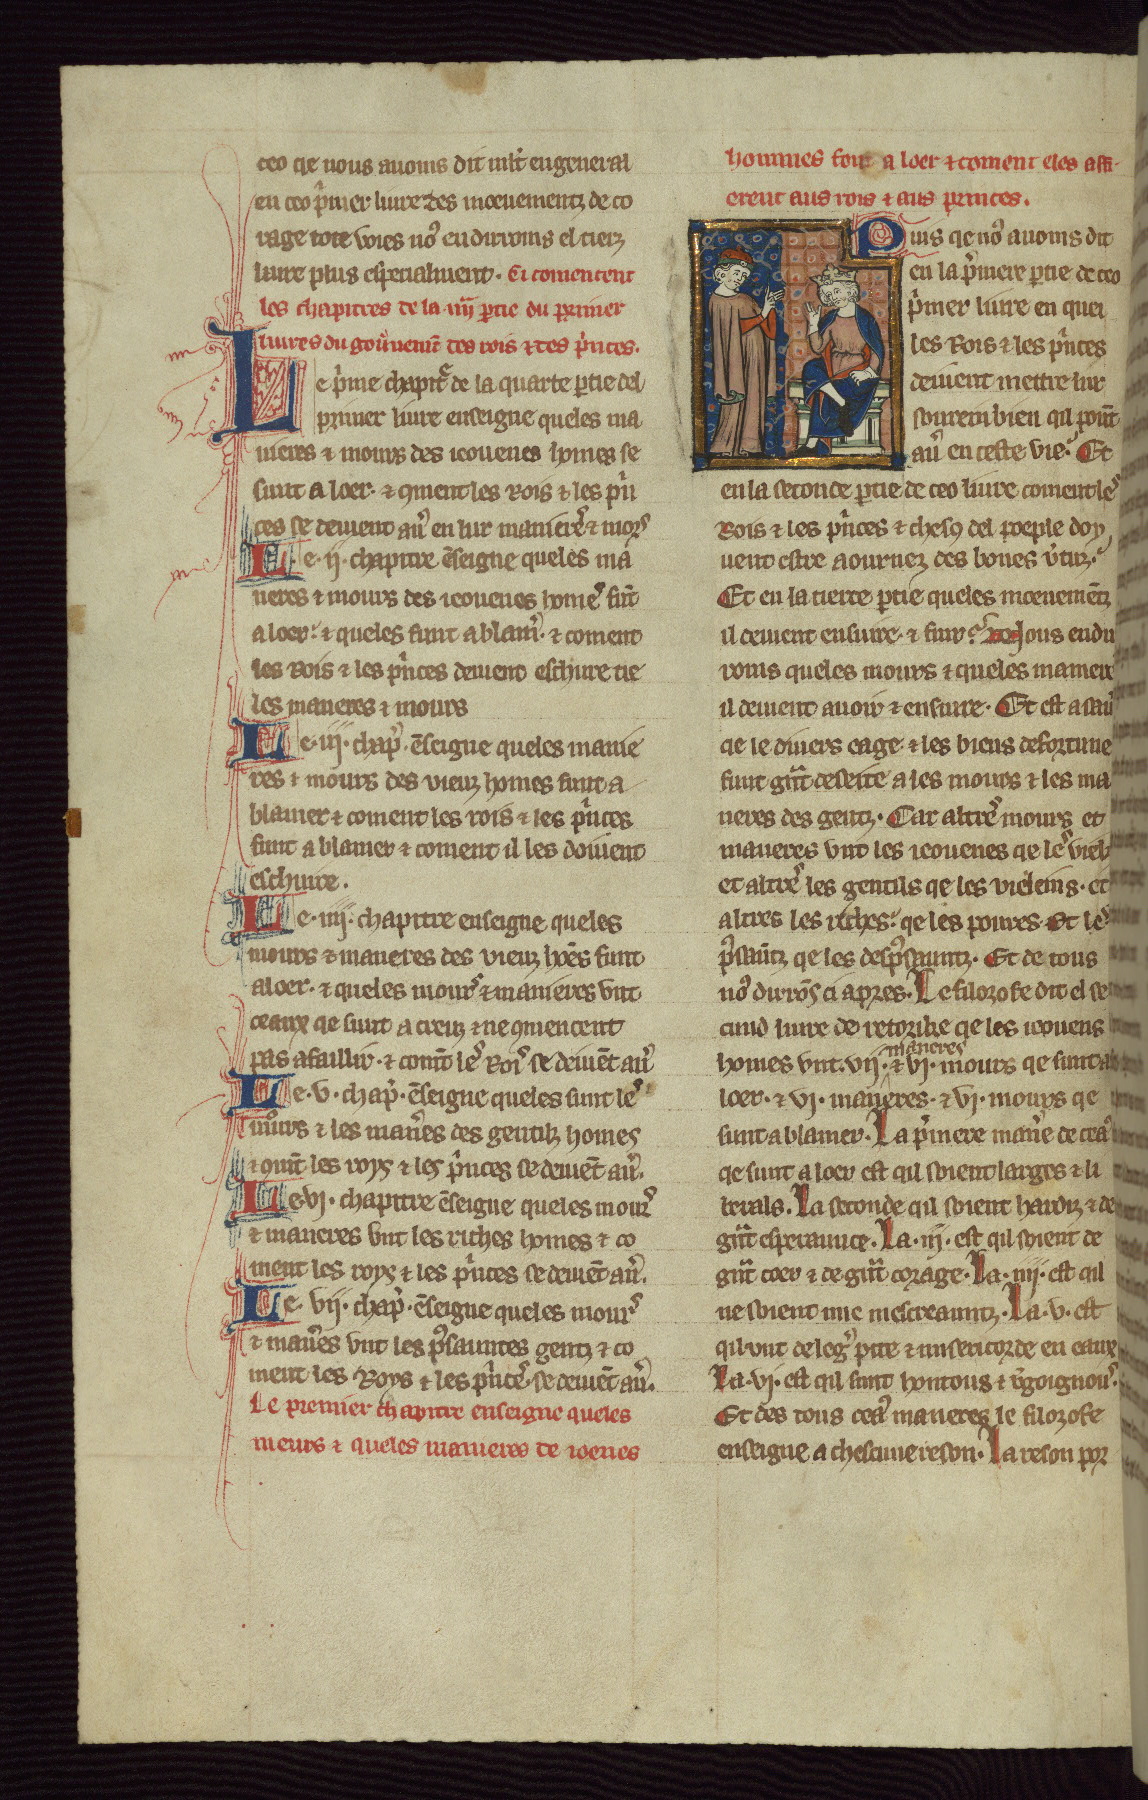 ceo qe nous auoms dit mlt en general
en ceo p̍mier liure des moeuementz de co
rage tote voies no9 en dirroms el tierz
liure plus especialment. Ci comencent
les chapitres de la .iiij. p̱tie du primer
liures du gou̍nemt̄ des rois ⁊ des p̍nces.
Le p̍me chapit̍e de la quarte p̱tie del
primer liure enseigne queles ma
nieres ⁊ mours des iouenes homes se
sunt a loer. ⁊ qment les Rois ⁊ les p̍n
ces se deiuent au̍ en lur manier̍e ⁊ mors
Le .ij. chapitre ēseigne queles ma
neres ⁊ mours des iouenes home̍s sūt
a loer. ⁊ queles sunt a blam̍. ⁊ coment
les Rois ⁊ les p̍nces deiuent eschure tie
les maneres ⁊ mours
Le .iij. chap̍. ēseigne queles manie
res ⁊ mours des vieuz homes sunt a
blamer ⁊ coment les rois ⁊ les p̍nces
sunt a blamer ⁊ coment il les doiuent
eschure.
Le .iiij. chapitre enseigne queles
mours ⁊ maneres des vieuz hōes sunt
a loer. ⁊ queles mours ⁊ manieres vnt
ceaux qe sunt a creuz ⁊ ne qmencent
pas a faillir. ⁊ comō les Rois se deiuēt au̍
Le .v. chap̍. ēseigne queles sunt les
mo̍urs ⁊ les man̍es des gentilz homes
⁊ qmt̄ les roys ⁊ les p̍nces se deiuēt au̍.
Le .vi. chapitre ēseigne queles mours
⁊ maneres vnt les riches homes ⁊ co
ment les roys ⁊ les p̍nces se deiuēt au̍.
Le .vij. chap̍. ēseigne queles mours
⁊ man̍es vnt les p̍sauntes gentz ⁊ co
ment les Roys ⁊ les p̍nces se deiuēt au̍.
Le premier chapitre enseigne queles
meurs ⁊ queles manieres de ioenes
hommes font a loer ⁊ coment eles affi
erent aus rois ⁊ aus princes.
Puis qe no9 auoms dit
en la p̍miere p̱tie de ceo
p̍mier liure en quei
les Rois ⁊ les p̍nces
deiuent mettre lur
souerein bien qil pount
au̍ en ceste vie. Et
en la seconde p̱tie de ceo liure coment les
Rois ⁊ les p̍nces ⁊ chefs del poeple doy
uent estre aournez des bones v̍tuz.
Et en la tierce p̱tie queles moeuementz
il deiuent ensuire ⁊ fuir. Nous en di
roms queles mours ⁊ queles maniere
il deiuent auoir ⁊ ensuire. Et est a sau̍
qe le diuers eage ⁊ les biens de fortune
funt gn̄t deserte a les mours ⁊ les ma
neres des gentz. Car altres mours et
maneres vnt les iouenes qe les vielz
et altres les gentils qe les vieleins. et
altres les riches qe les poures. Et les
p̍sauntz qe les desp̍sauntz. Et de tous
no9 dirrōs ci apres. Le filozofe dit el se
cund liure de retorike qe les iouens
homes vnt .vij. maneres ⁊ vj. mours qe sunt a
loer. ⁊ vj. maneres. ⁊ vj. mours qe
sunt a blamer. La p̍miere man̍e de ceas
qe sunt a loer est qil soient larges ⁊ li
berals. La seconde qil soient hardiz ⁊ de
gn̄t esperaunce. La .iij. est qil soient de
gn̄t coer ⁊ de gn̄t corage. La .iiij. est qil
ne soient mie mescreauntz. La .v. est
qil vnt de leg̍ pite ⁊ misericorde en eaux
La .vi. est qil sunt hontous ⁊ v̍goignous.
Et des tous ceas maneres le filozofe
enseigne a chescune reson. La reson por